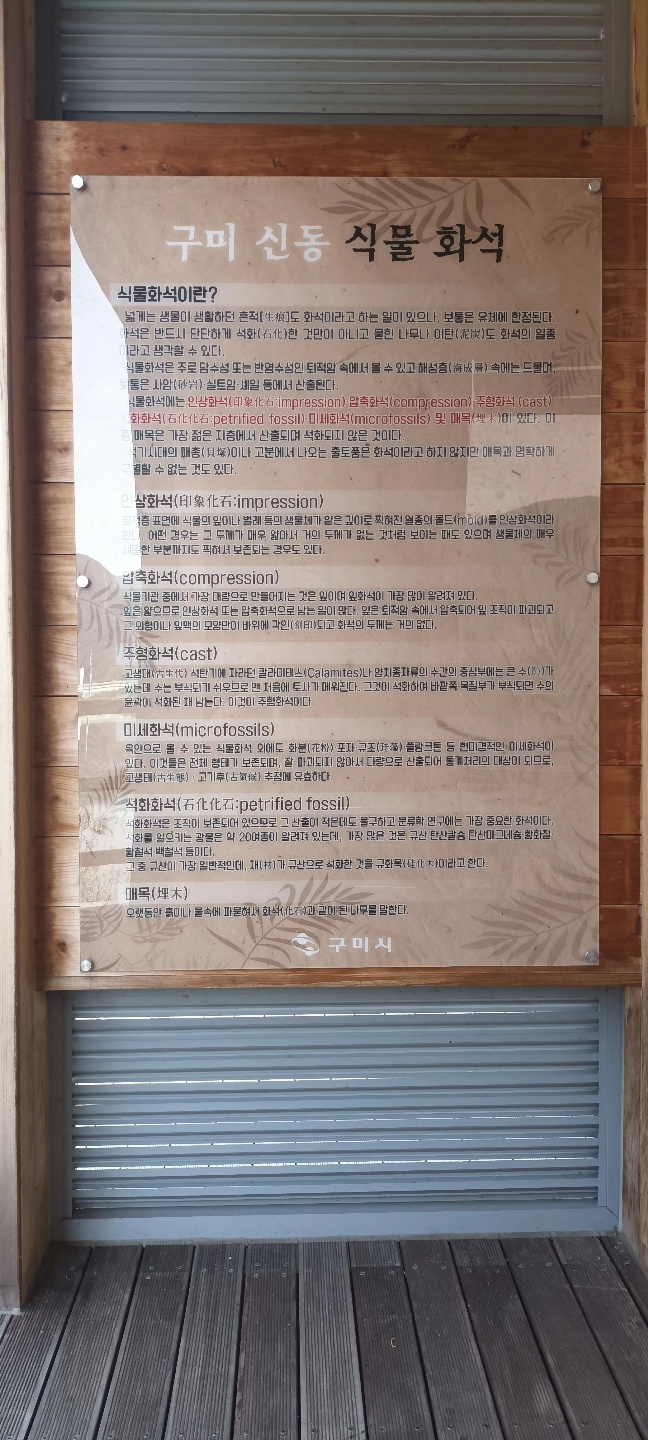 구미 신동 식물 화석
식물화석이란?
넓게는 생물이 생활하던 흔적[生痕]도 화석이라고 하는 일이 있으나, 보통은 유체에 한정된다.
화석은 반드시 단단하게 석화(石化)한 것만이 아니고 묻힌 나무나 이탄(泥炭)도 화석의 일종
이라고 생각할 수 있다.
식물화석은 주로 담수성 또는 반염수성인 퇴적암 속에서 볼 수 있고 해성층(海成層) 속에는 드물며,
보통은 사암(砂岩)·실트암·셰일 등에서 산출된다.
식물화석에는 인상화석(印象化石:impression)·압축화석(compression)·주형화석(cast)
석화화석(石化化石:petrified fossil)·미세화석(microfossils) 및 매목(埋木)이 있다. 이
중 매목은 가장 젊은 지층에서 산출되며 석화되지 않은 것이다.
석기시대의 패총(貝塚)이나 고분에서 나오는 출토품은 화석이라고 하지 않지만 매목과 명확하게
구별할 수 없는 것도 있다.
인상화석(印象化石:impression)
퇴적층 표면에 식물의 잎이나 벌레 등의 생물체가 얕은 깊이로 찍혀진 일종의 몰드(mold)를 인상화석이라
한다. 어떤 경우는 그 두께가 매우 얇아서 거의 두께가 없는 것처럼 보이는 때도 있으며 생물체의 매우
세밀한 부분까지도 찍혀서 보존되는 경우도 있다.
압축화석(compression)
식물기관 중에서 가장 대량으로 만들어지는 것은 잎이며 잎화석이 가장 많이 알려져 있다.
잎은 얇으므로 인상화석 또는 압축화석으로 남는 일이 많다. 잎은 퇴적암 속에서 압축되어 잎 조직이 파괴되고
그 외형이나 잎맥의 모양만이 바위에 각인(刻印)되고 화석의 두께는 거의 없다.
주형화석(cast)
고생대(古生代) 석탄기에 자라던 칼라미테스(Calamites)나 양치종자류의 수간의 중심부에는 큰 수(髓)가
있는데 수는 부식되기 쉬우므로 맨 처음에 토사가 메워진다. 그것이 석화하여 바깥쪽 목질부가 부식되면 수의
윤곽이 석화된 채 남는다. 이것이 주형화석이다
미세화석(microfossils)
육안으로 볼 수 있는 식물화석 외에도 화분(花粉)·포자·규조(硅藻)·플랑크톤 등 현미경적인 미세화석이
있다. 이것들은 전체 형태가 보존되며, 잘 파괴되지 않아서 대량으로 산출되어 통계처리의 대상이 되므로,
고생태(古生態)·고기후(古氣候) 추정에 유효하다.
석화화석(石化化石:petrified fossil)
석화화석은 조직이 보존되어 있으므로 그 산출이 적은데도 불구하고 분류학 연구에는 가장 중요한 화석이다.
석화를 일으키는 광물은 약 20여종이 알려져 있는데, 가장 많은 것은 규산·탄산칼슘·탄산마그네슘·황화철·
황철석·백철석 등이다.
그 중 규산이 가장 일반적인데, 재(材)가 규산으로 석화한 것을 규화목(硅化木)이라고 한다.
매목(埋木)
오랫동안 흙이나 물속에 파묻혀서 화석(化石)과 같이 된 나무를 말한다.
구미시